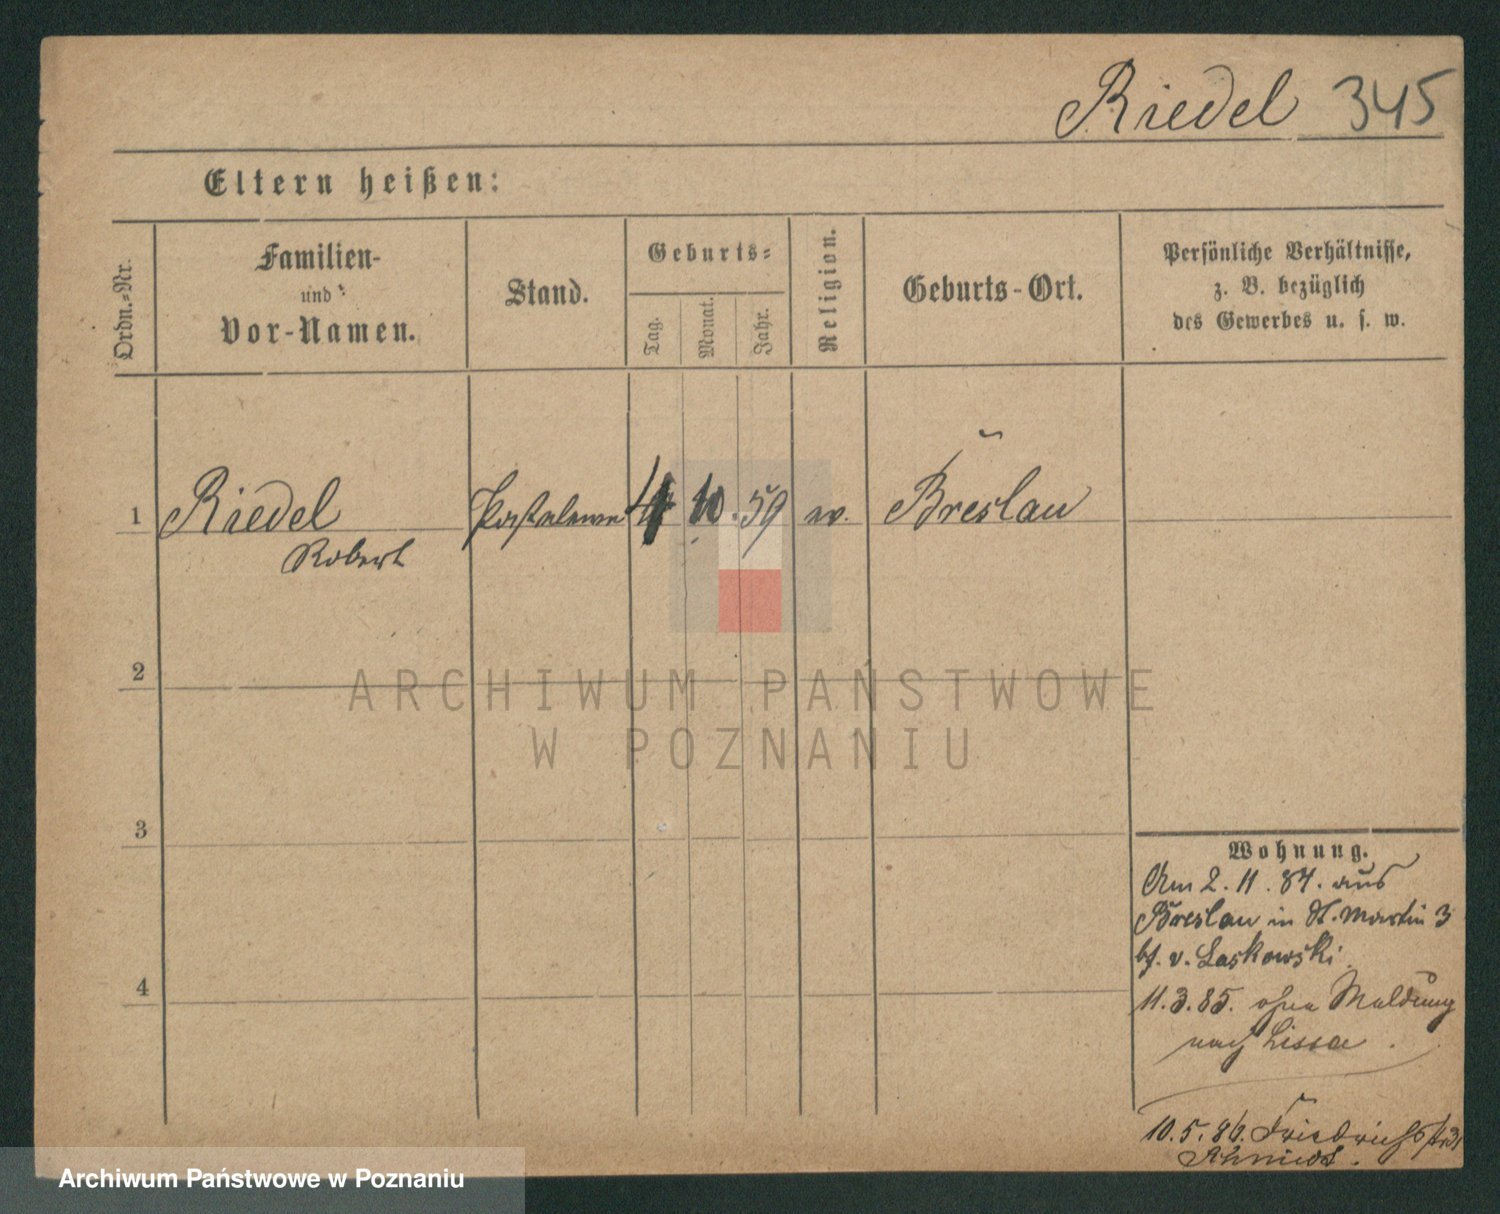 Riedel 345
Eltern heißen:
Ordn.=Nr.
Familien-
und
Vor-Namen.
Stand.
Geburts=
Tag.
Monat.
Jahr.
Religion.
Geburts-Ort.
Persönliche Verhältnisse,
z. B. bezüglich
des Gewerbes u. s. w.
1 Riedel 10. 59 ev. Breslau
Robert
2
3
4
Wohnung.
Am 2. 11. 84. aus
Breslau in St. Martin 3
bf. v. Laskowski
11.3.85. ohne Meldung
nach Lissa.
10.5.86. Friedrichstr 31
Schmidt.
ARCHIWUM PAŃSTWOWE
W POZNANIU
Archiwum Państwowe w Poznaniu